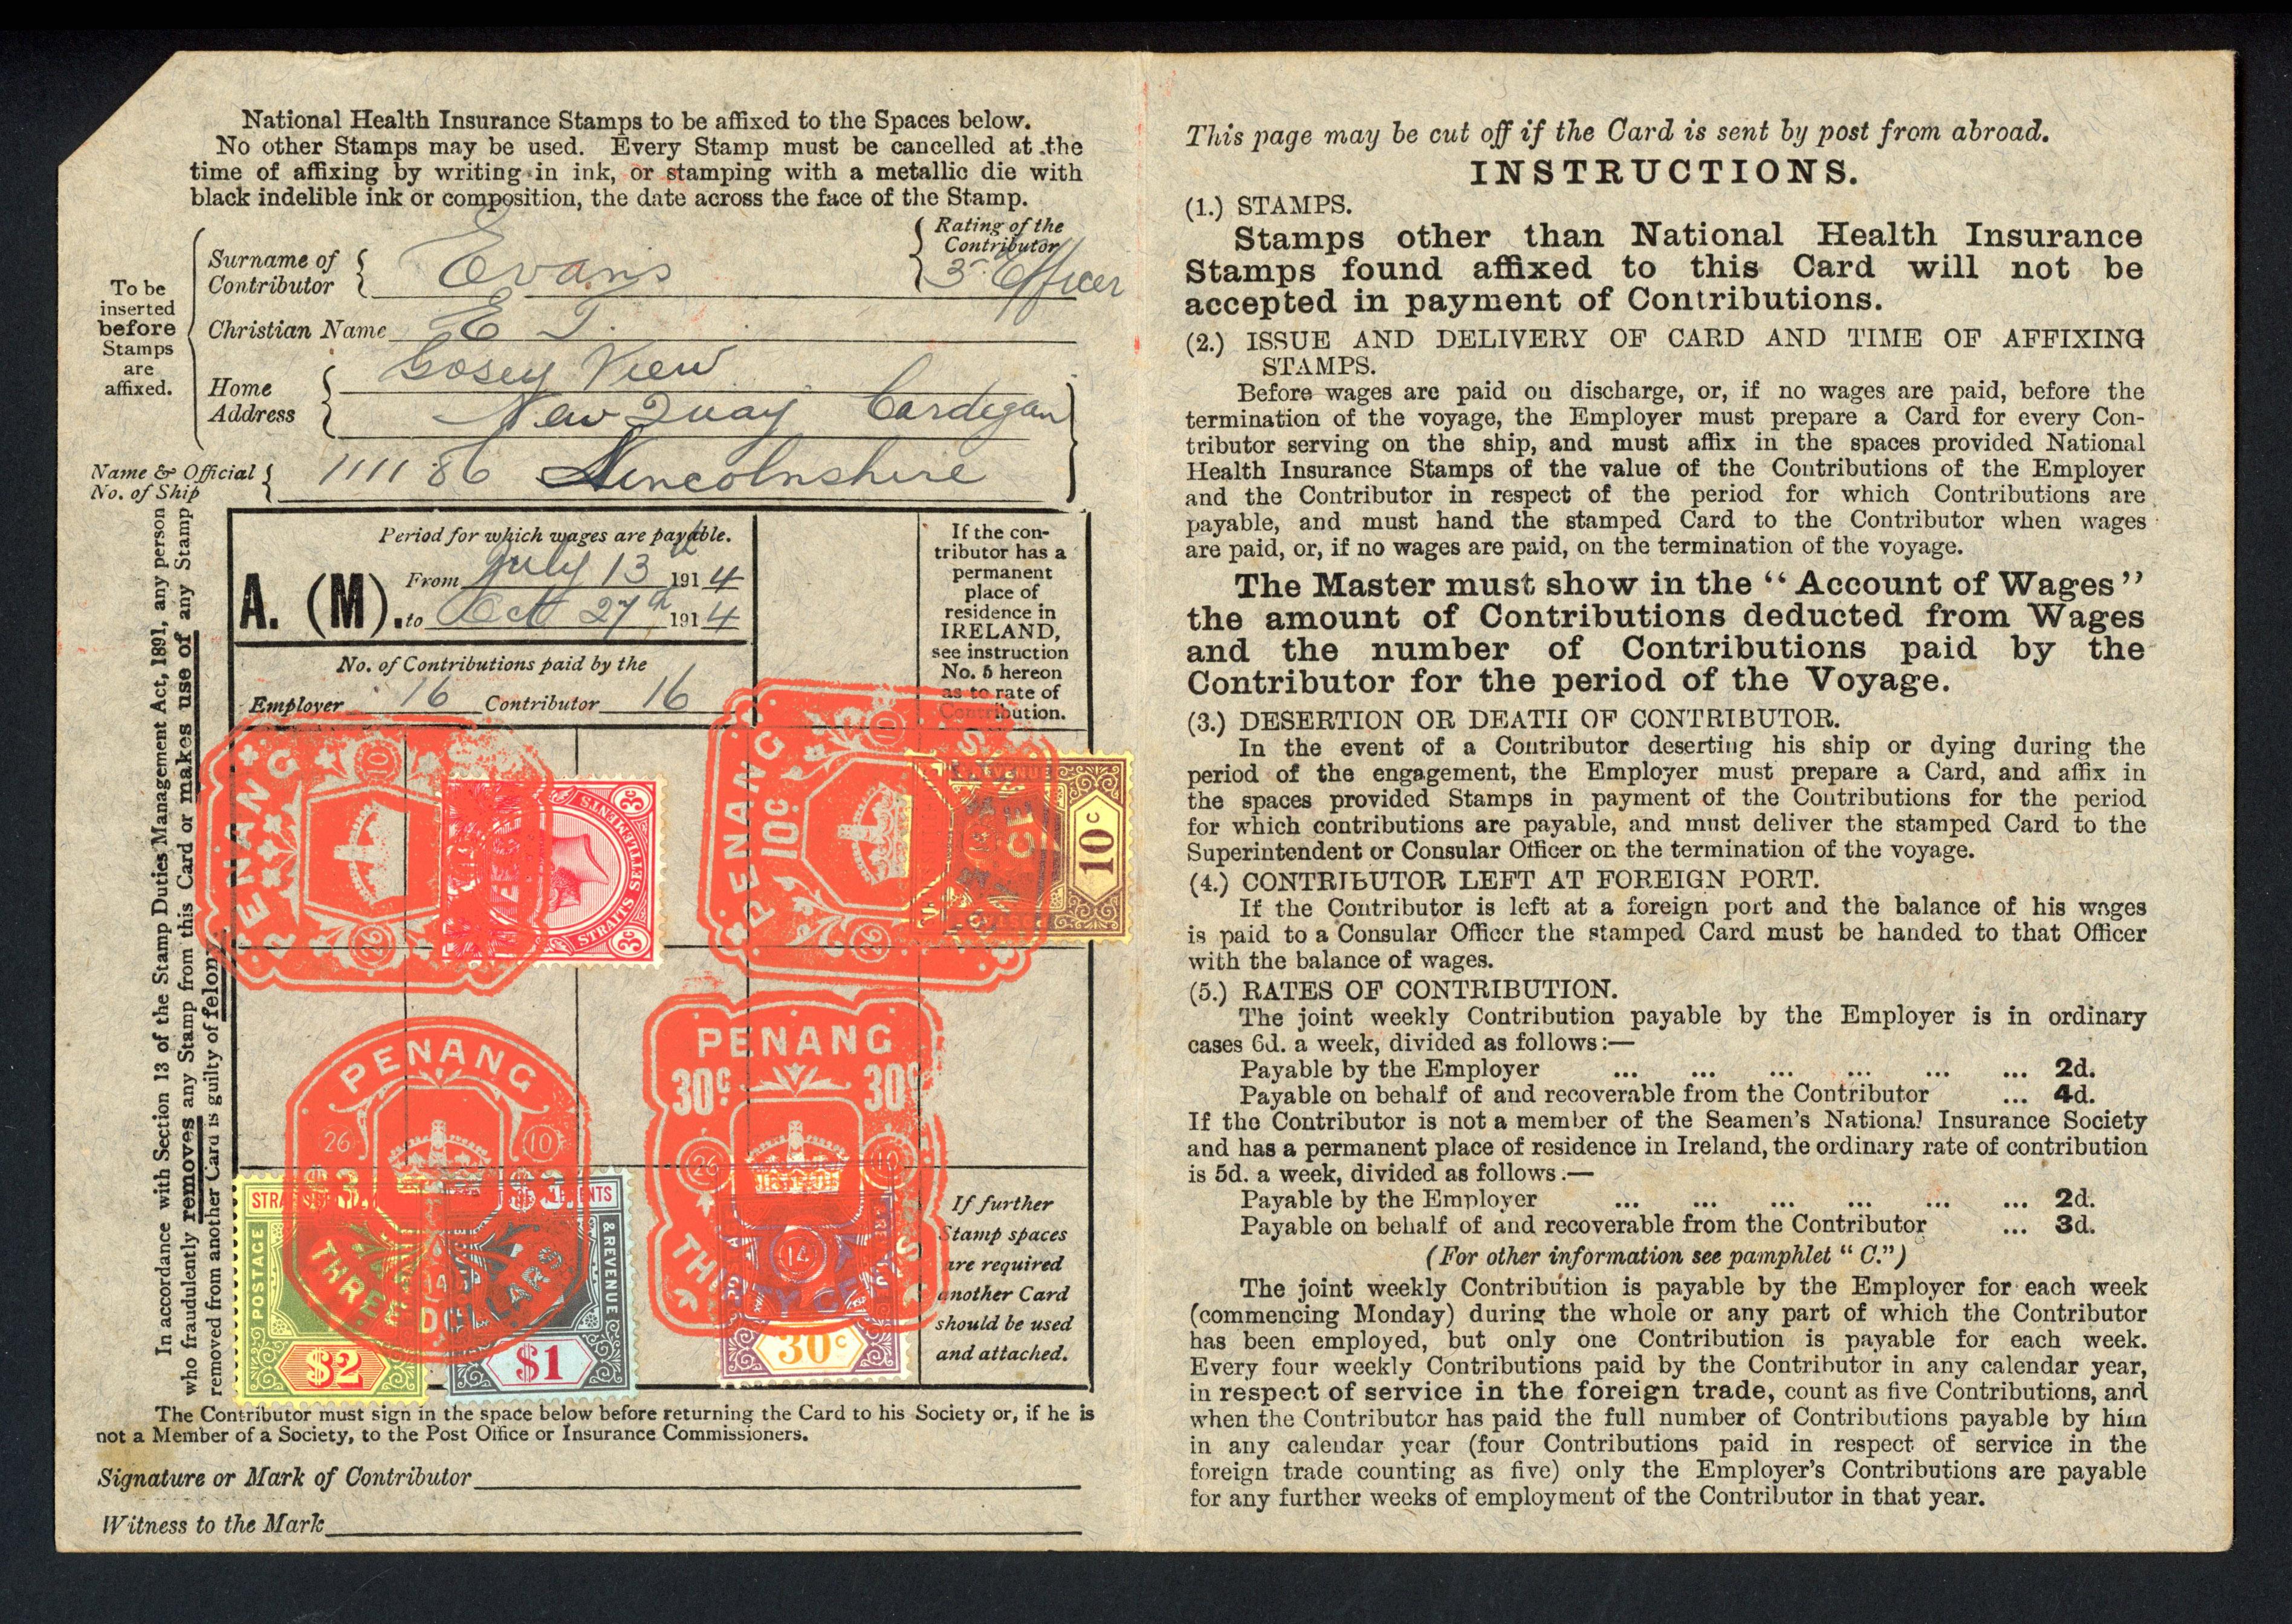 National Health Insurance Stamps to be affixed to the Spaces below.
No other Stamps may be used. Every Stamp must be cancelled at the
time of affixing by writing in ink, or stamping with a metallic die with
black indelible ink or composition, the date across the face of the Stamp.
To be
inserted
before
Stamps
are
affixed.
Surname of
Contributor
Evans
Rating of the
Contributor
3rd Officer
Christian Name E T.
Home
Address
View
New Quay Cardigan
Name & Official
No. of Ship
111186 Lincolnshire
In accordance with Section 13 of the Stamp Duties Management Act, 1891, any person
who fraudulently removes any Stamp from this Card or makes use of any Stamp
removed from another Card is guilty of felony.
A. (M).
Period for which wages are payable.
From July 13th 1914
to Oct 27th 1914
No. of Contributions paid by the
Employer 16 Contributor 16
If the con-
tributor has a
permanent
place of
residence in
IRELAND,
see instruction
No. 5 hereon
as to rate of
Contribution.
PENANG
10
26
STRAITS SETTLEMENTS
3c
3c
PENANG
10c
10
26
10c
PENANG
26
10
$3
$3
14
THREE DOLLARS
POSTAGE
$2
& REVENUE
$1
PENANG
30c
30c
26
10
14
30c
If further
Stamp spaces
are required
another Card
should be used
and attached.
The Contributor must sign in the space below before returning the Card to his Society or, if he is
not a Member of a Society, to the Post Office or Insurance Commissioners.
Signature or Mark of Contributor
Witness to the Mark
This page may be cut off if the Card is sent by post from abroad.
INSTRUCTIONS.
(1.) STAMPS.
Stamps other than National Health Insurance
Stamps found affixed to this Card will not be
accepted in payment of Contributions.
(2.) ISSUE AND DELIVERY OF CARD AND TIME OF AFFIXING
STAMPS.
Before wages are paid on discharge, or, if no wages are paid, before the
termination of the voyage, the Employer must prepare a Card for every Con-
tributor serving on the ship, and must affix in the spaces provided National
Health Insurance Stamps of the value of the Contributions of the Employer
and the Contributor in respect of the period for which Contributions are
payable, and must hand the stamped Card to the Contributor when wages
are paid, or, if no wages are paid, on the termination of the voyage.
The Master must show in the “Account of Wages”
the amount of Contributions deducted from Wages
and the number of Contributions paid by the
Contributor for the period of the Voyage.
(3.) DESERTION OR DEATH OF CONTRIBUTOR.
In the event of a Contributor deserting his ship or dying during the
period of the engagement, the Employer must prepare a Card, and affix in
the spaces provided Stamps in payment of the Contributions for the period
for which contributions are payable, and must deliver the stamped Card to the
Superintendent or Consular Officer on the termination of the voyage.
(4.) CONTRIBUTOR LEFT AT FOREIGN PORT.
If the Contributor is left at a foreign port and the balance of his wages
is paid to a Consular Officer the stamped Card must be handed to that Officer
with the balance of wages.
(5.) RATES OF CONTRIBUTION.
The joint weekly Contribution payable by the Employer is in ordinary
cases 6d. a week, divided as follows:—
Payable by the Employer ... ... ... ... ... ... 2d.
Payable on behalf of and recoverable from the Contributor ... 4d.
If the Contributor is not a member of the Seamen's National Insurance Society
and has a permanent place of residence in Ireland, the ordinary rate of contribution
is 5d. a week, divided as follows.—
Payable by the Employer ... ... ... ... ... ... 2d.
Payable on behalf of and recoverable from the Contributor ... 3d.
(For other information see pamphlet “C.”)
The joint weekly Contribution is payable by the Employer for each week
(commencing Monday) during the whole or any part of which the Contributor
has been employed, but only one Contribution is payable for each week.
Every four weekly Contributions paid by the Contributor in any calendar year,
in respect of service in the foreign trade, count as five Contributions, and
when the Contributor has paid the full number of Contributions payable by him
in any calendar year (four Contributions paid in respect of service in the
foreign trade counting as five) only the Employer's Contributions are payable
for any further weeks of employment of the Contributor in that year.